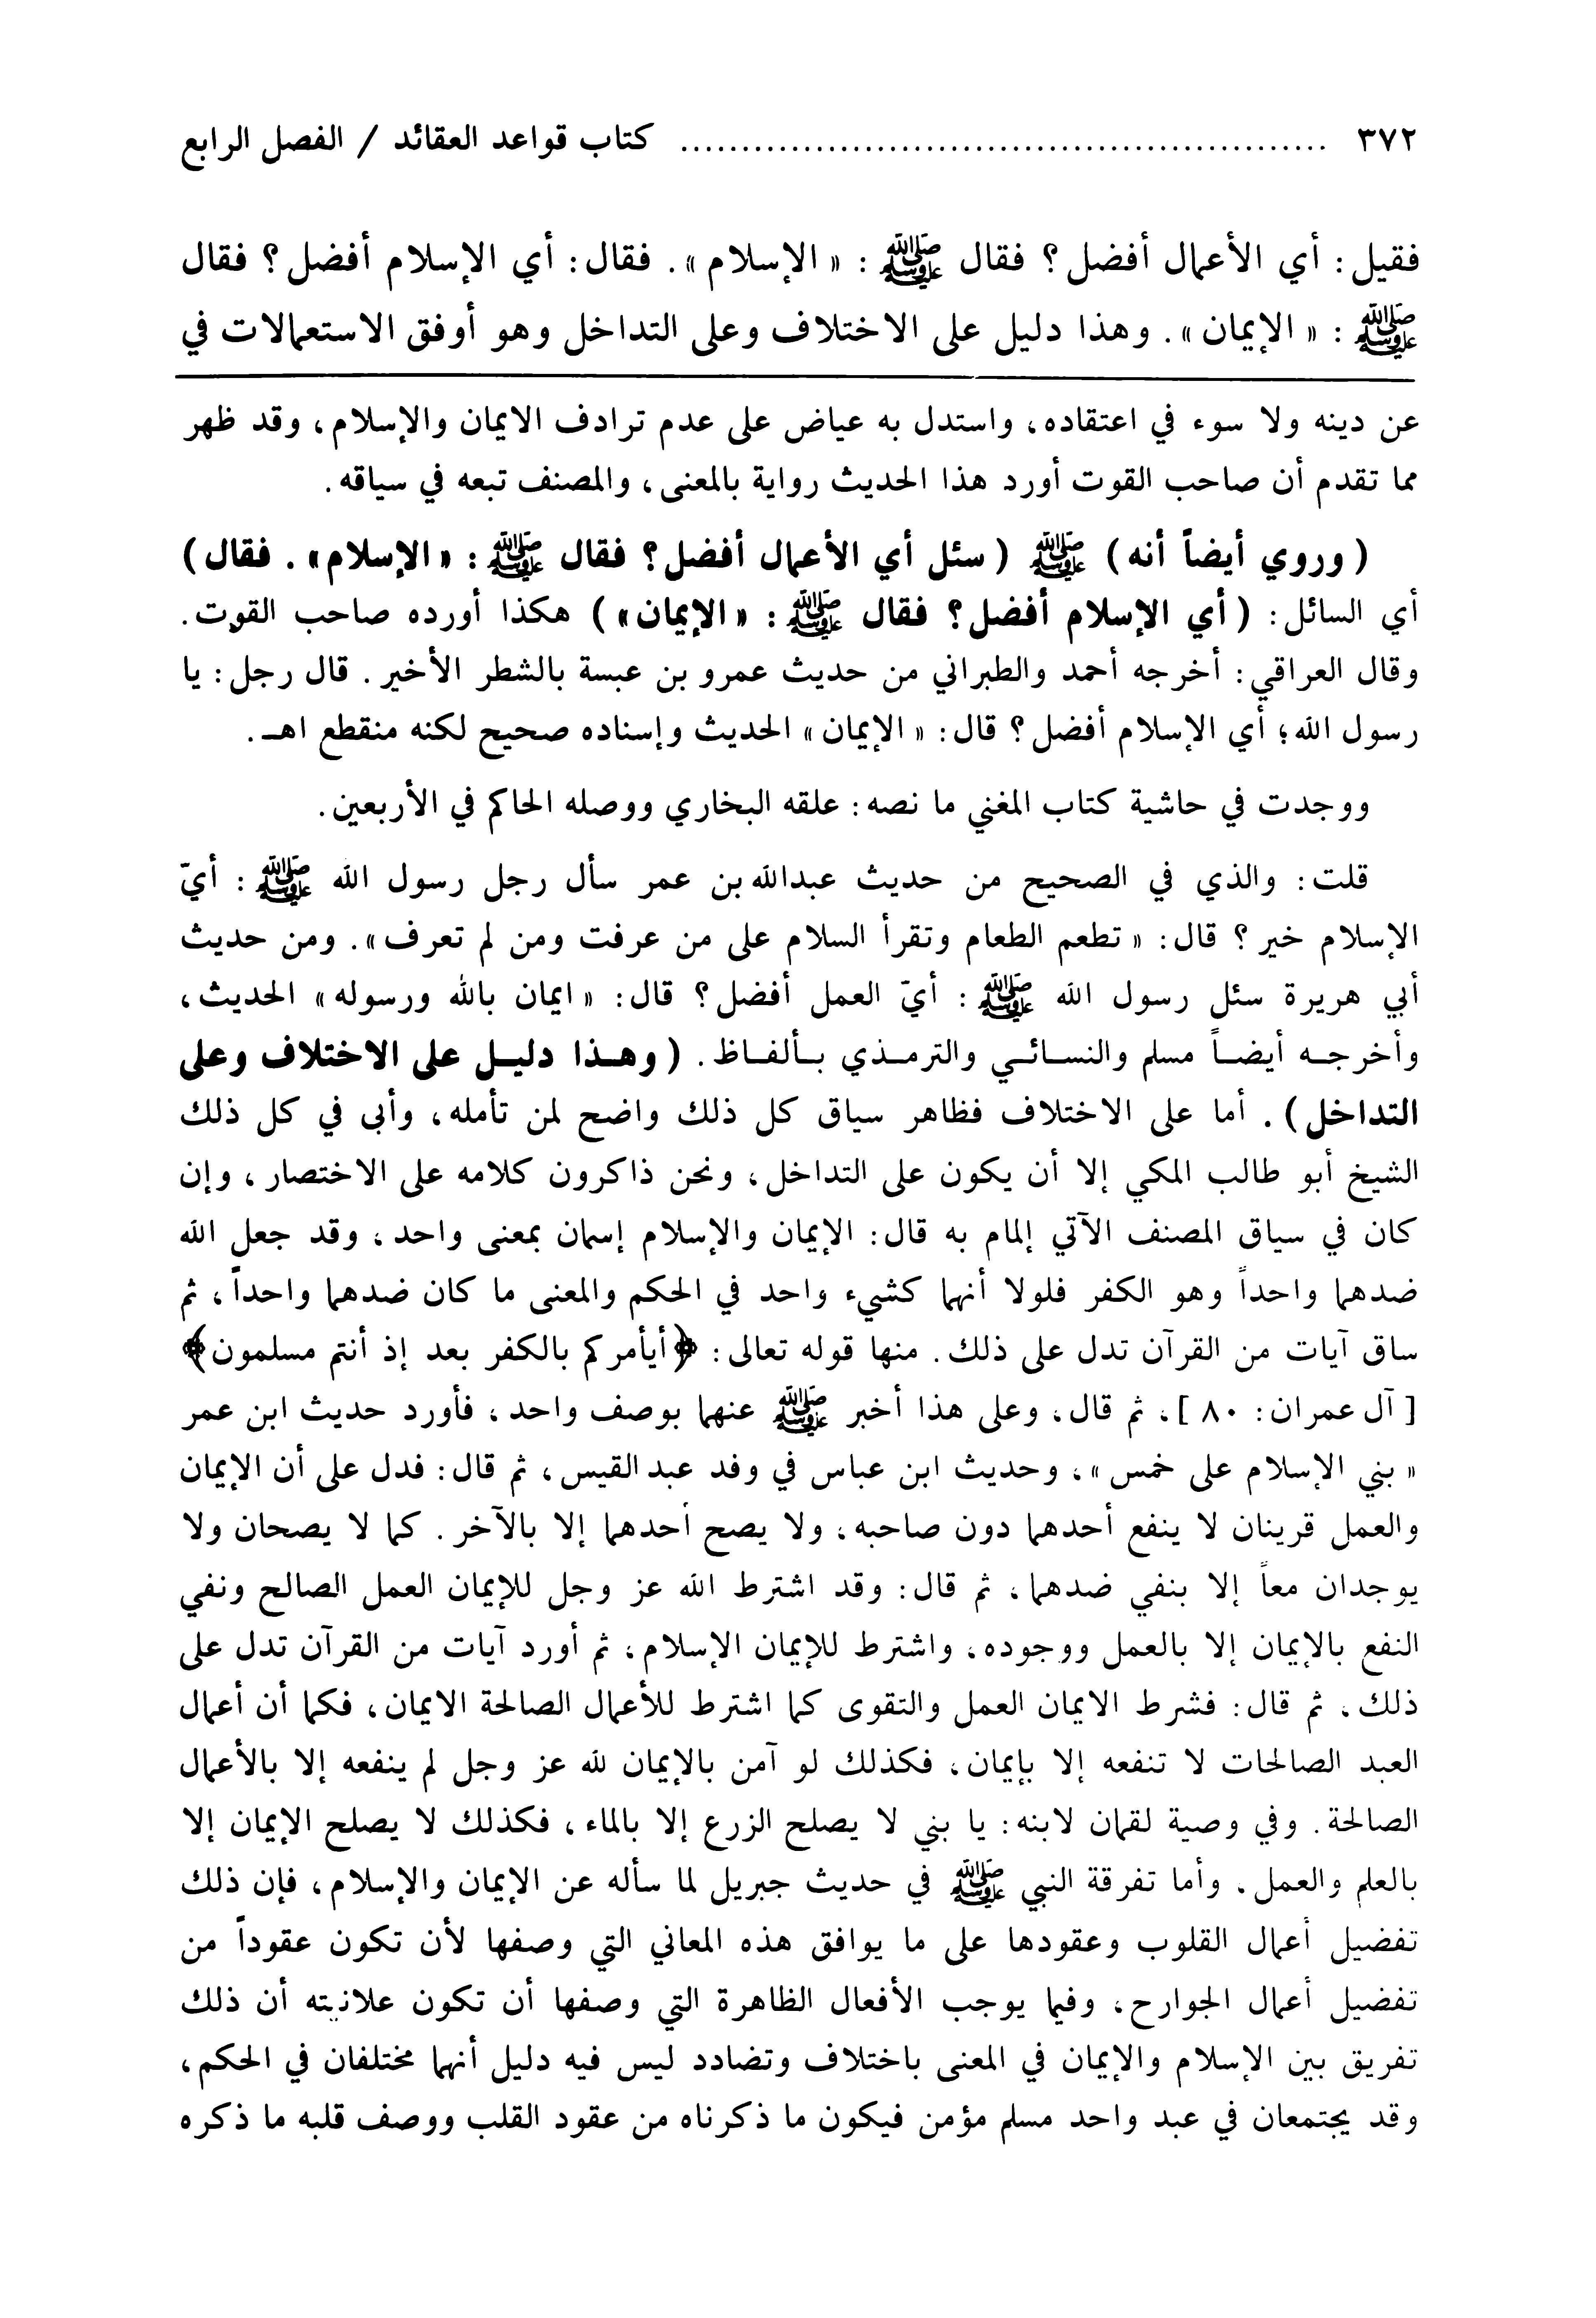 ٣٧٢ ..................................................... كتاب قواعد العقائد / الفصل الرابع
فقيل: أي الأعمال أفضل؟ فقال ﷺ: «الإسلام». فقال: أي الإسلام أفضل؟ فقال
ﷺ: «الإيمان». وهذا دليل على الاختلاف وعلى التداخل وهو أوفق الاستعمالات في
عن دينه ولا سوء في اعتقاده، واستدل به عياض على عدم ترادف الايمان والإسلام، وقد ظهر
مما تقدم أن صاحب القوت أورد هذا الحديث رواية بالمعنى، والمصنف تبعه في سياقه.
(وروي أيضاً أنه) ﷺ (سئل أي الأعمال أفضل؟ فقال ﷺ: «الإسلام». فقال)
أي السائل: (أي الإسلام أفضل؟ فقال ﷺ: «الإيمان») هكذا أورده صاحب القوت.
وقال العراقي: أخرجه أحمد والطبراني من حديث عمرو بن عبسة بالشطر الأخير. قال رجل: يا
رسول الله؛ أي الإسلام أفضل؟ قال: «الإيمان» الحديث وإسناده صحيح لكنه منقطع اهـ.
ووجدت في حاشية كتاب المغني ما نصه: علقه البخاري ووصله الحاكم في الأربعين.
قلت: والذي في الصحيح من حديث عبدالله بن عمر سأل رجل رسول الله ﷺ: أيّ
الإسلام خير؟ قال: «تطعم الطعام وتقرأ السلام على من عرفت ومن لم تعرف». ومن حديث
أبي هريرة سئل رسول الله ﷺ: أيّ العمل أفضل؟ قال: «ايمان بالله ورسوله» الحديث،
وأخرجه أيضاً مسلم والنسائي والترمذي بألفاظ. (وهذا دليل على الاختلاف وعلى
التداخل). أما على الاختلاف فظاهر سياق كل ذلك واضح لمن تأمله، وأبى في كل ذلك
الشيخ أبو طالب المكي إلا أن يكون على التداخل، ونحن ذاكرون كلامه على الاختصار، وإن
كان في سياق المصنف الآتي إلمام به قال: الإيمان والإسلام إسمان بمعنى واحد، وقد جعل الله
ضدهما واحداً وهو الكفر فلولا أنهما كشيء واحد في الحكم والمعنى ما كان ضدهما واحداً، ثم
ساق آيات من القرآن تدل على ذلك. منها قوله تعالى: ﴿أيأمركم بالكفر بعد إذ أنتم مسلمون﴾
[آل عمران: ٨٠]، ثم قال، وعلى هذا أخبر ﷺ عنهما بوصف واحد، فأورد حديث ابن عمر
«بني الإسلام على خمس»، وحديث ابن عباس في وفد عبد القيس، ثم قال: فدل على أن الإيمان
والعمل قرينان لا ينفع أحدهما دون صاحبه، ولا يصح أحدهما إلا بالآخر. كما لا يصحان ولا
يوجدان معاً إلا بنفي ضدهما، ثم قال: وقد اشترط الله عز وجل للإيمان العمل الصالح ونفي
النفع بالإيمان إلا بالعمل ووجوده، واشترط للإيمان الإسلام، ثم أورد آيات من القرآن تدل على
ذلك، ثم قال: فشرط الايمان العمل والتقوى كما اشترط للأعمال الصالحة الايمان، فكما أن أعمال
العبد الصالحات لا تنفعه إلا بإيمان، فكذلك لو آمن بالإيمان لله عز وجل لم ينفعه إلا بالأعمال
الصالحة. وفي وصية لقمان لابنه: يا بني لا يصلح الزرع إلا بالماء، فكذلك لا يصلح الإيمان إلا
بالعلم والعمل. وأما تفرقة النبي ﷺ في حديث جبريل لما سأله عن الإيمان والإسلام، فإن ذلك
تفضيل أعمال القلوب وعقودها على ما يوافق هذه المعاني التي وصفها لأن تكون عقوداً من
تفضيل أعمال الجوارح، وفيما يوجب الأفعال الظاهرة التي وصفها أن تكون علانيته أن ذلك
تفريق بين الإسلام والإيمان في المعنى باختلاف وتضادد ليس فيه دليل أنهما مختلفان في الحكم،
وقد يجتمعان في عبد واحد مسلم مؤمن فيكون ما ذكرناه من عقود القلب ووصف قلبه ما ذكره